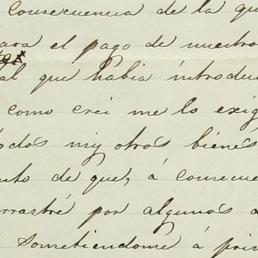 consecuencia de la qu
ara el pago de nuestro
al que habia introdu
como crei me lo exig
odos my otros bienes
to de que, á consecue
rrastré por algunos a
sometiendome á pri